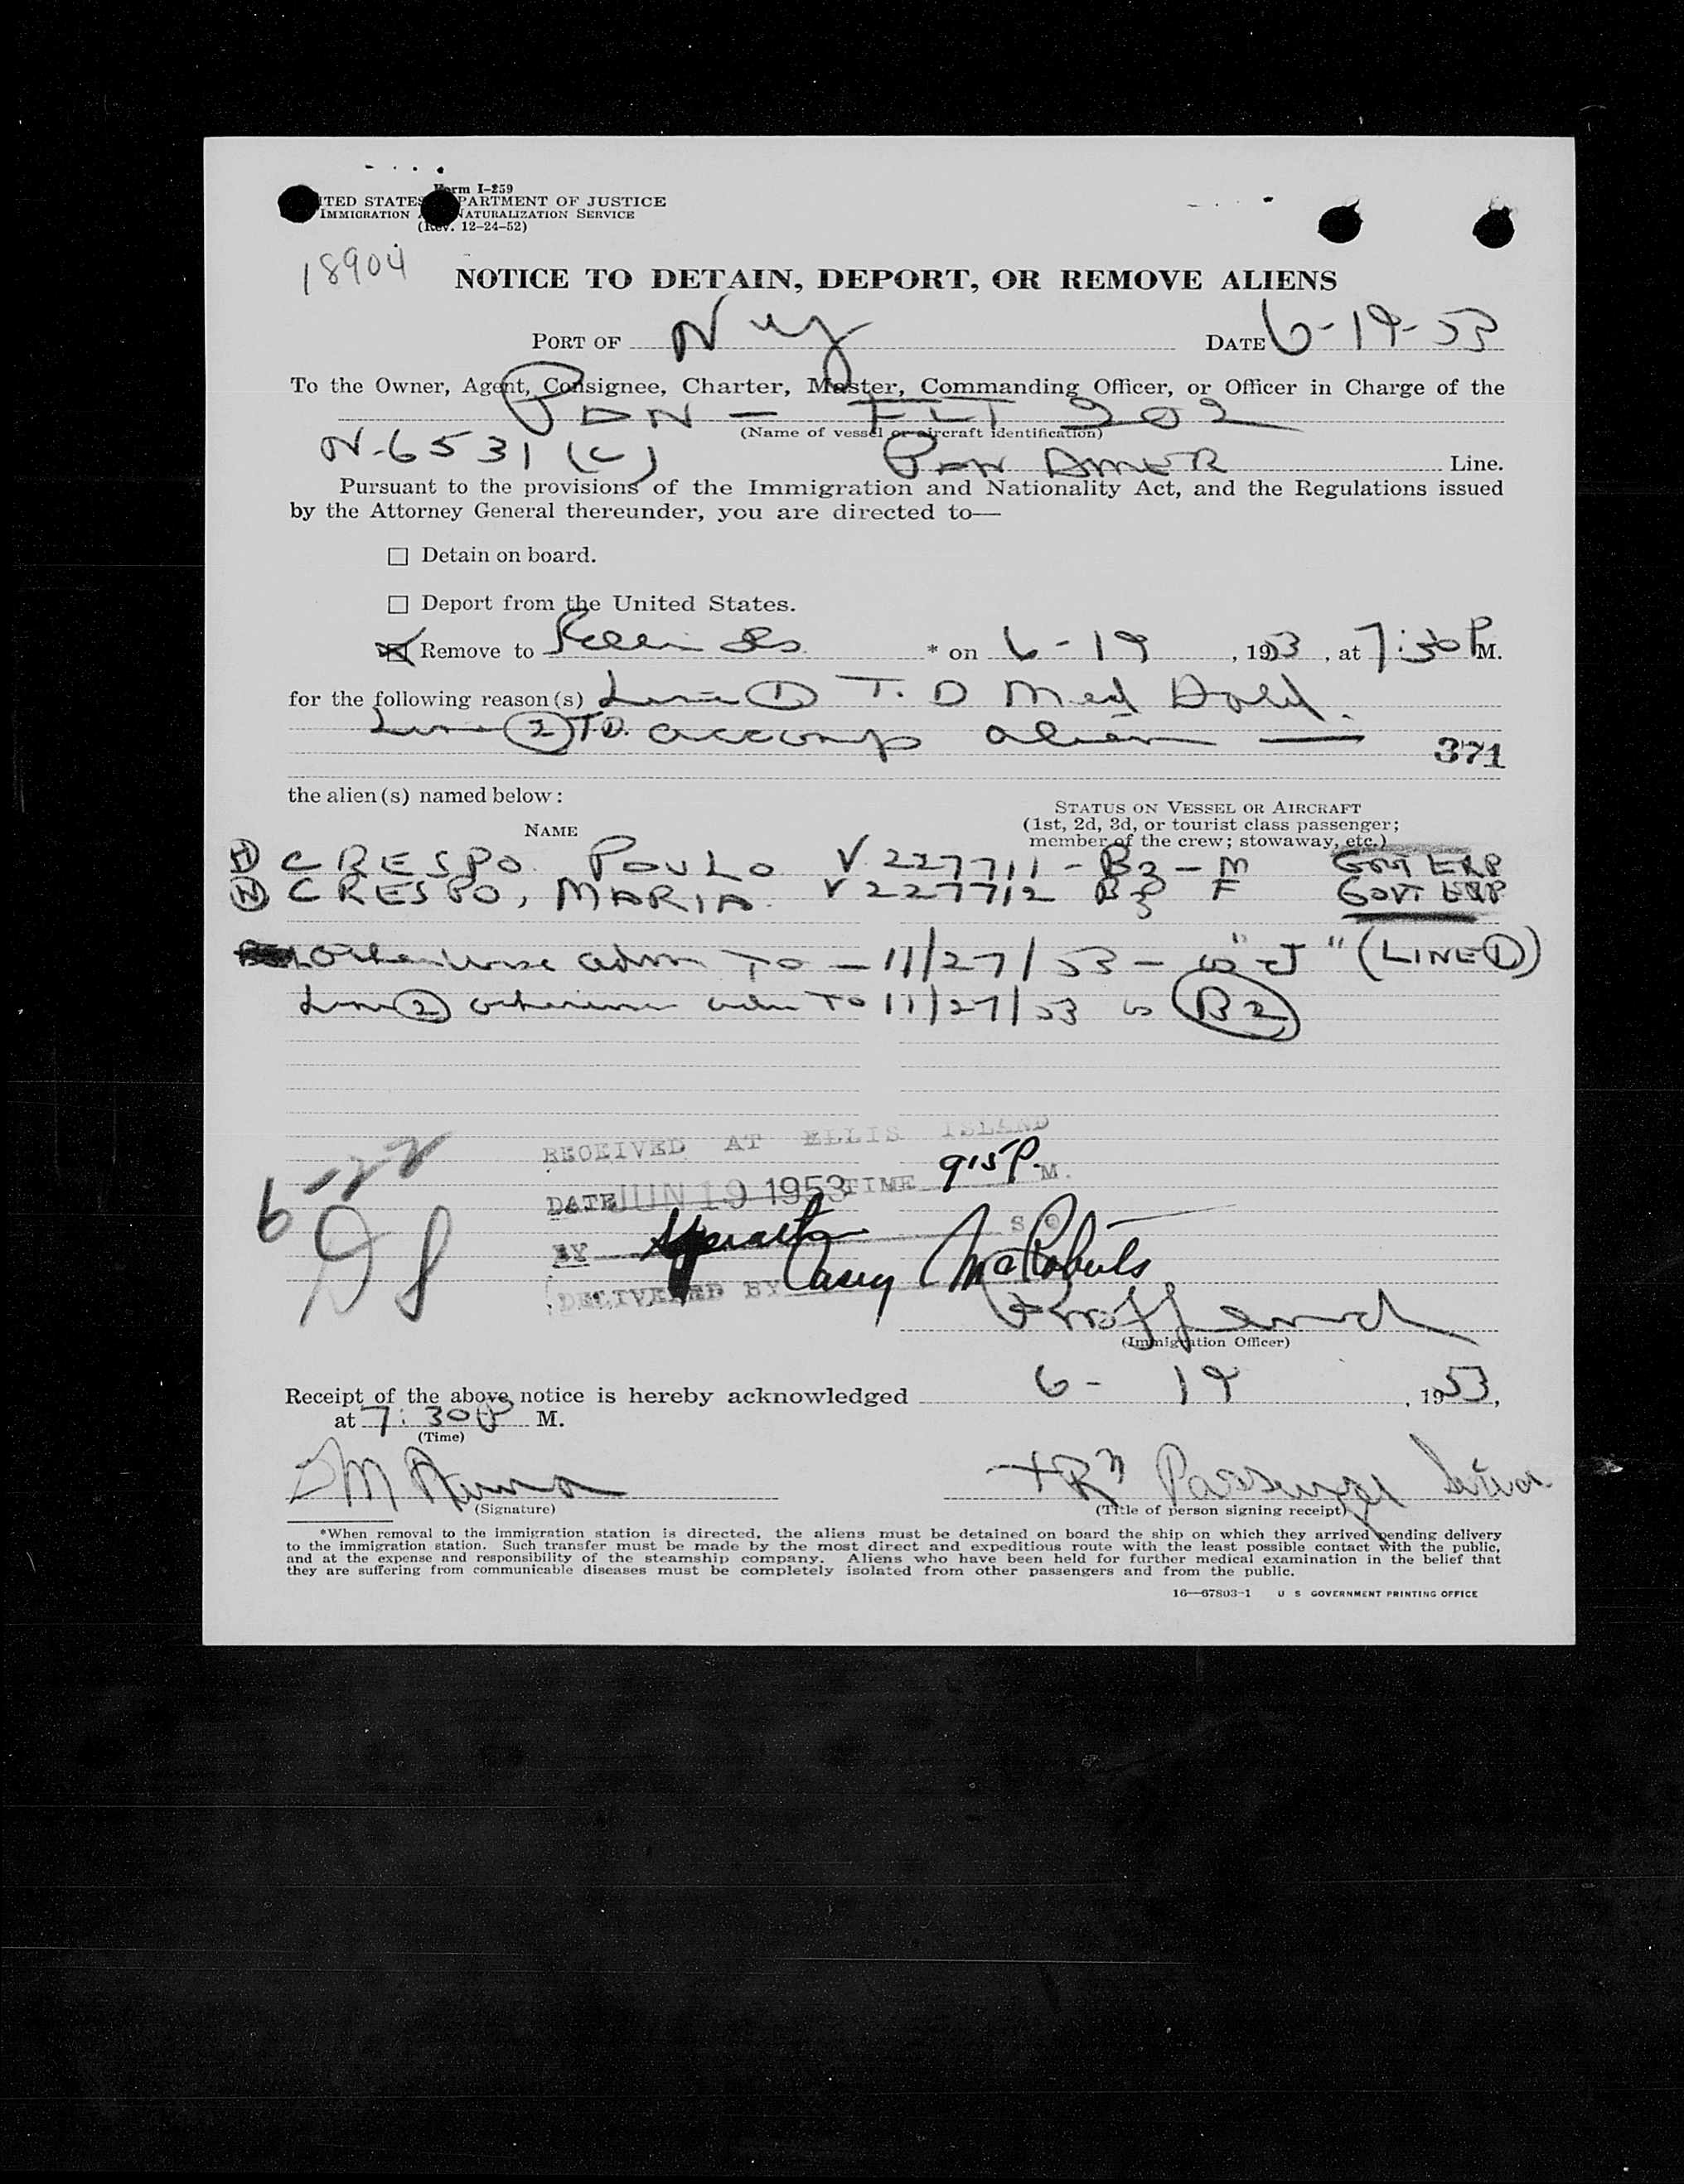 Form I-259
ITED STATES PARTMENT OF JUSTICE
IMMIGRATION NATURALIZATION SERVICE
(Rev. 12-24-52)
18904
NOTICE TO DETAIN, DEPORT, OR REMOVE ALIENS
PORT OF Ny DATE 6-19-53
To the Owner, Agent, Consignee, Charter, Master, Commanding Officer, or Officer in Charge of the
PAN - FLT 202
(Name of vessel or aircraft identification)
N-6531 (C) PAN AMER Line.
Pursuant to the provisions of the Immigration and Nationality Act, and the Regulations issued
by the Attorney General thereunder, you are directed to—
☐ Detain on board.
☐ Deport from the United States.
☒ Remove to Ellis Is * on 6-19, 1953, at 7:30 P M.
for the following reason(s) Line 1 T. D Med Hold.
Line 2 T.D. accomp alien —
371
the alien(s) named below:
STATUS ON VESSEL OR AIRCRAFT
NAME (1st, 2d, 3d, or tourist class passenger;
member of the crew; stowaway, etc.)
1 CRESPO POULO V. 227711 - B2 - M GOVT EXP
2 CRESPO, MARIA V 227712 B2 F GOVT EXP
Otherwise adm To - 11/27/53 - as "J" (LINE 1)
Line 2 otherwise adm To 11/27/53 as B2
RECEIVED AT ELLIS ISLAND
6-22
DATE JUN 19 1953 TIME 915 P. M.
BY
DELIVERED BY Casey McRoberts
(Immigration Officer)
Receipt of the above notice is hereby acknowledged 6- 19, 1953,
at 7:30 P M.
(Time)
Passenger Service
(Signature) (Title of person signing receipt)
*When removal to the immigration station is directed, the aliens must be detained on board the ship on which they arrived pending delivery
to the immigration station. Such transfer must be made by the most direct and expeditious route with the least possible contact with the public,
and at the expense and responsibility of the steamship company. Aliens who have been held for further medical examination in the belief that
they are suffering from communicable diseases must be completely isolated from other passengers and from the public.
16—67803-1 U S GOVERNMENT PRINTING OFFICE